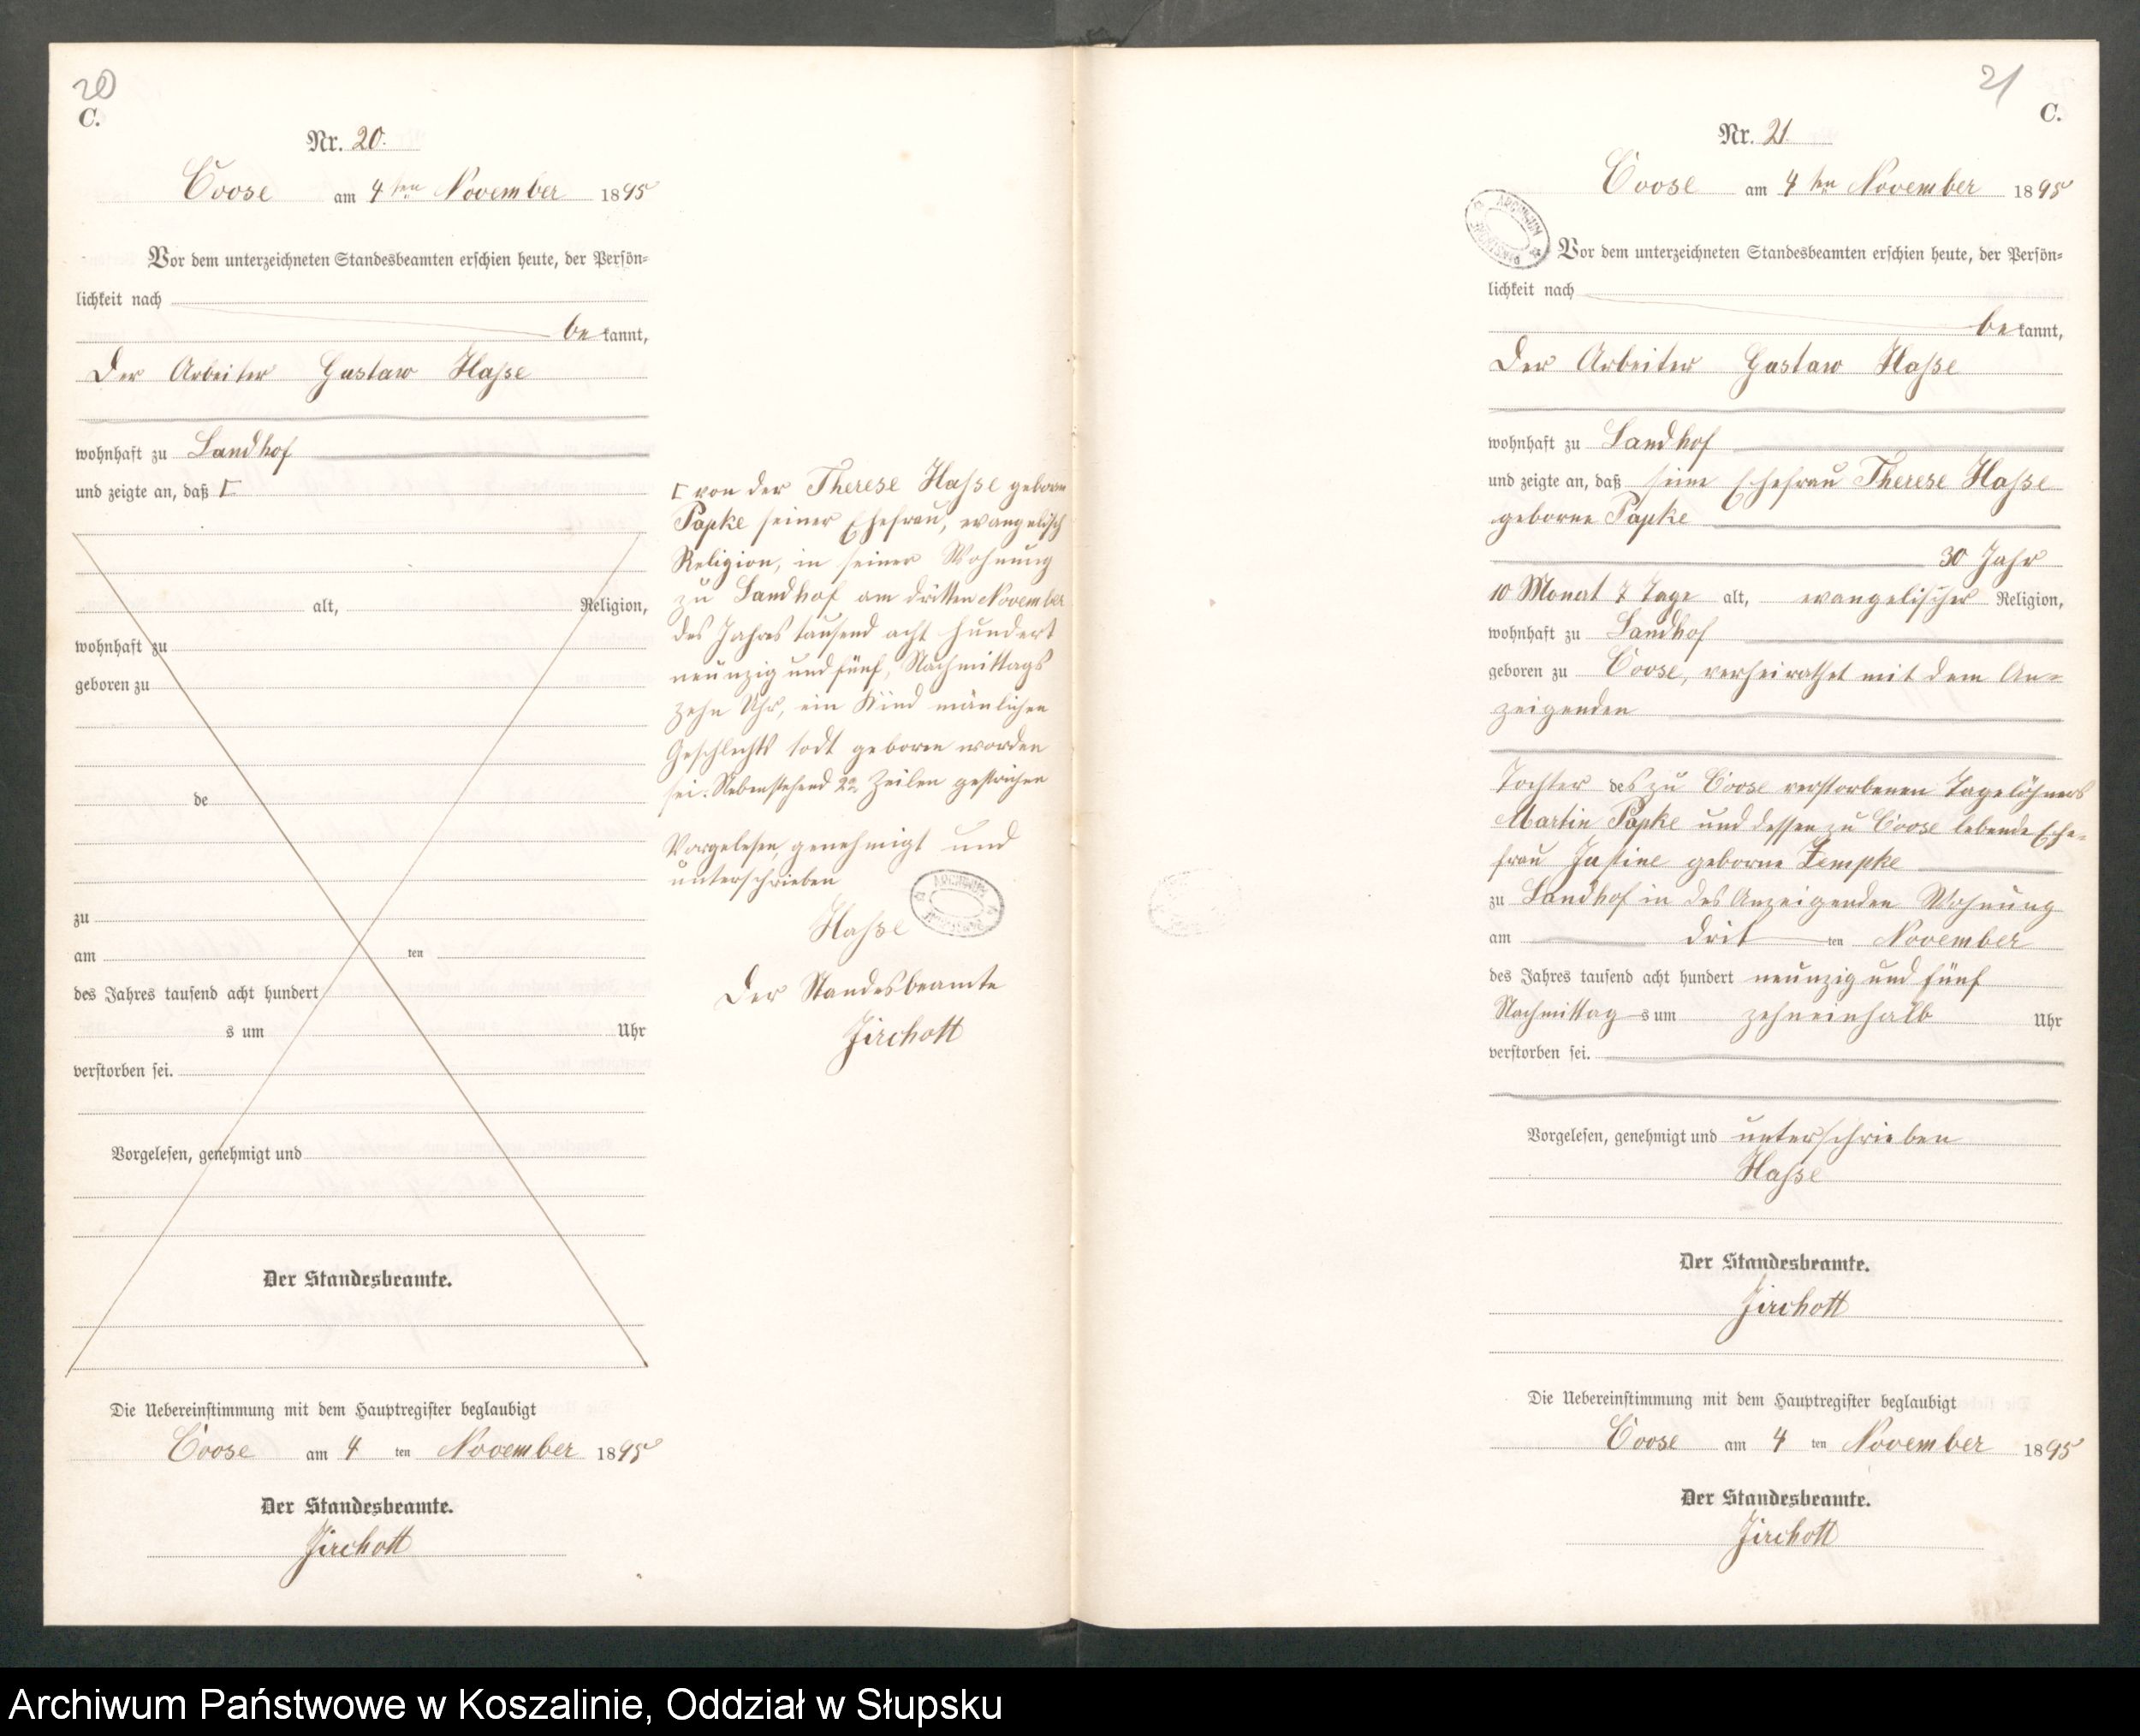 20
C.
Nr. 20.
Coose am 4ten November 1895
Vor dem unterzeichneten Standesbeamten erschien heute, der Persön-
lichkeit nach
bekannt,
Der Arbeiter Gustaw Hasse
wohnhaft zu Landhof
und zeigte an, daß
alt, Religion,
wohnhaft zu
geboren zu
de
zu
am ten
des Jahres tausend acht hundert
s um Uhr
verstorben sei.
Vorgelesen, genehmigt und
Der Standesbeamte.
Die Uebereinstimmung mit dem Hauptregister beglaubigt
Coose am 4 ten November 1895
Der Standesbeamte.
Jirchott
von der Therese Hasse geboren
Papke seiner Ehefrau, evangelisch
Religion, in seiner Wohnung
zu Landhof am dritten November
des Jahres tausend acht hundert
neunzig und fünf, Nachmittags
zehn Uhr, ein Kind mänlichen
Geschlechts todt geboren worden
sei. Nebenstehend Zeilen gestrichen
Vorgelesen, genehmigt und
unterschrieben
Hasse
Der Standesbeamte
Jirchott
21
C.
Nr. 21.
Coose am 4ten November 1895
Vor dem unterzeichneten Standesbeamten erschien heute, der Persön-
lichkeit nach
bekannt,
Der Arbeiter Gustaw Hasse
wohnhaft zu Landhof
und zeigte an, daß seine Ehefrau Therese Hasse
geborne Papke
30 Jahr
10 Monat 7 Tage alt, evangelischer Religion,
wohnhaft zu Landhof
geboren zu Coose, verheirathet mit dem An=
zeigenden
Tochter des zu Coose verstorbenen Tagelöhners
Martin Papke und dessen zu Coose lebende Ehe=
frau Justine geborne Zempke
zu Landhof in des Anzeigenden Wohnung
am drit ten November
des Jahres tausend acht hundert neunzig und fünf
Nachmittag s um zehneinhalb Uhr
verstorben sei.
Vorgelesen, genehmigt und unterschrieben
Hasse
Der Standesbeamte.
Jirchott
Die Uebereinstimmung mit dem Hauptregister beglaubigt
Coose am 4 ten November 1895
Der Standesbeamte.
Jirchott
Archiwum Państwowe w Koszalinie, Oddział w Słupsku